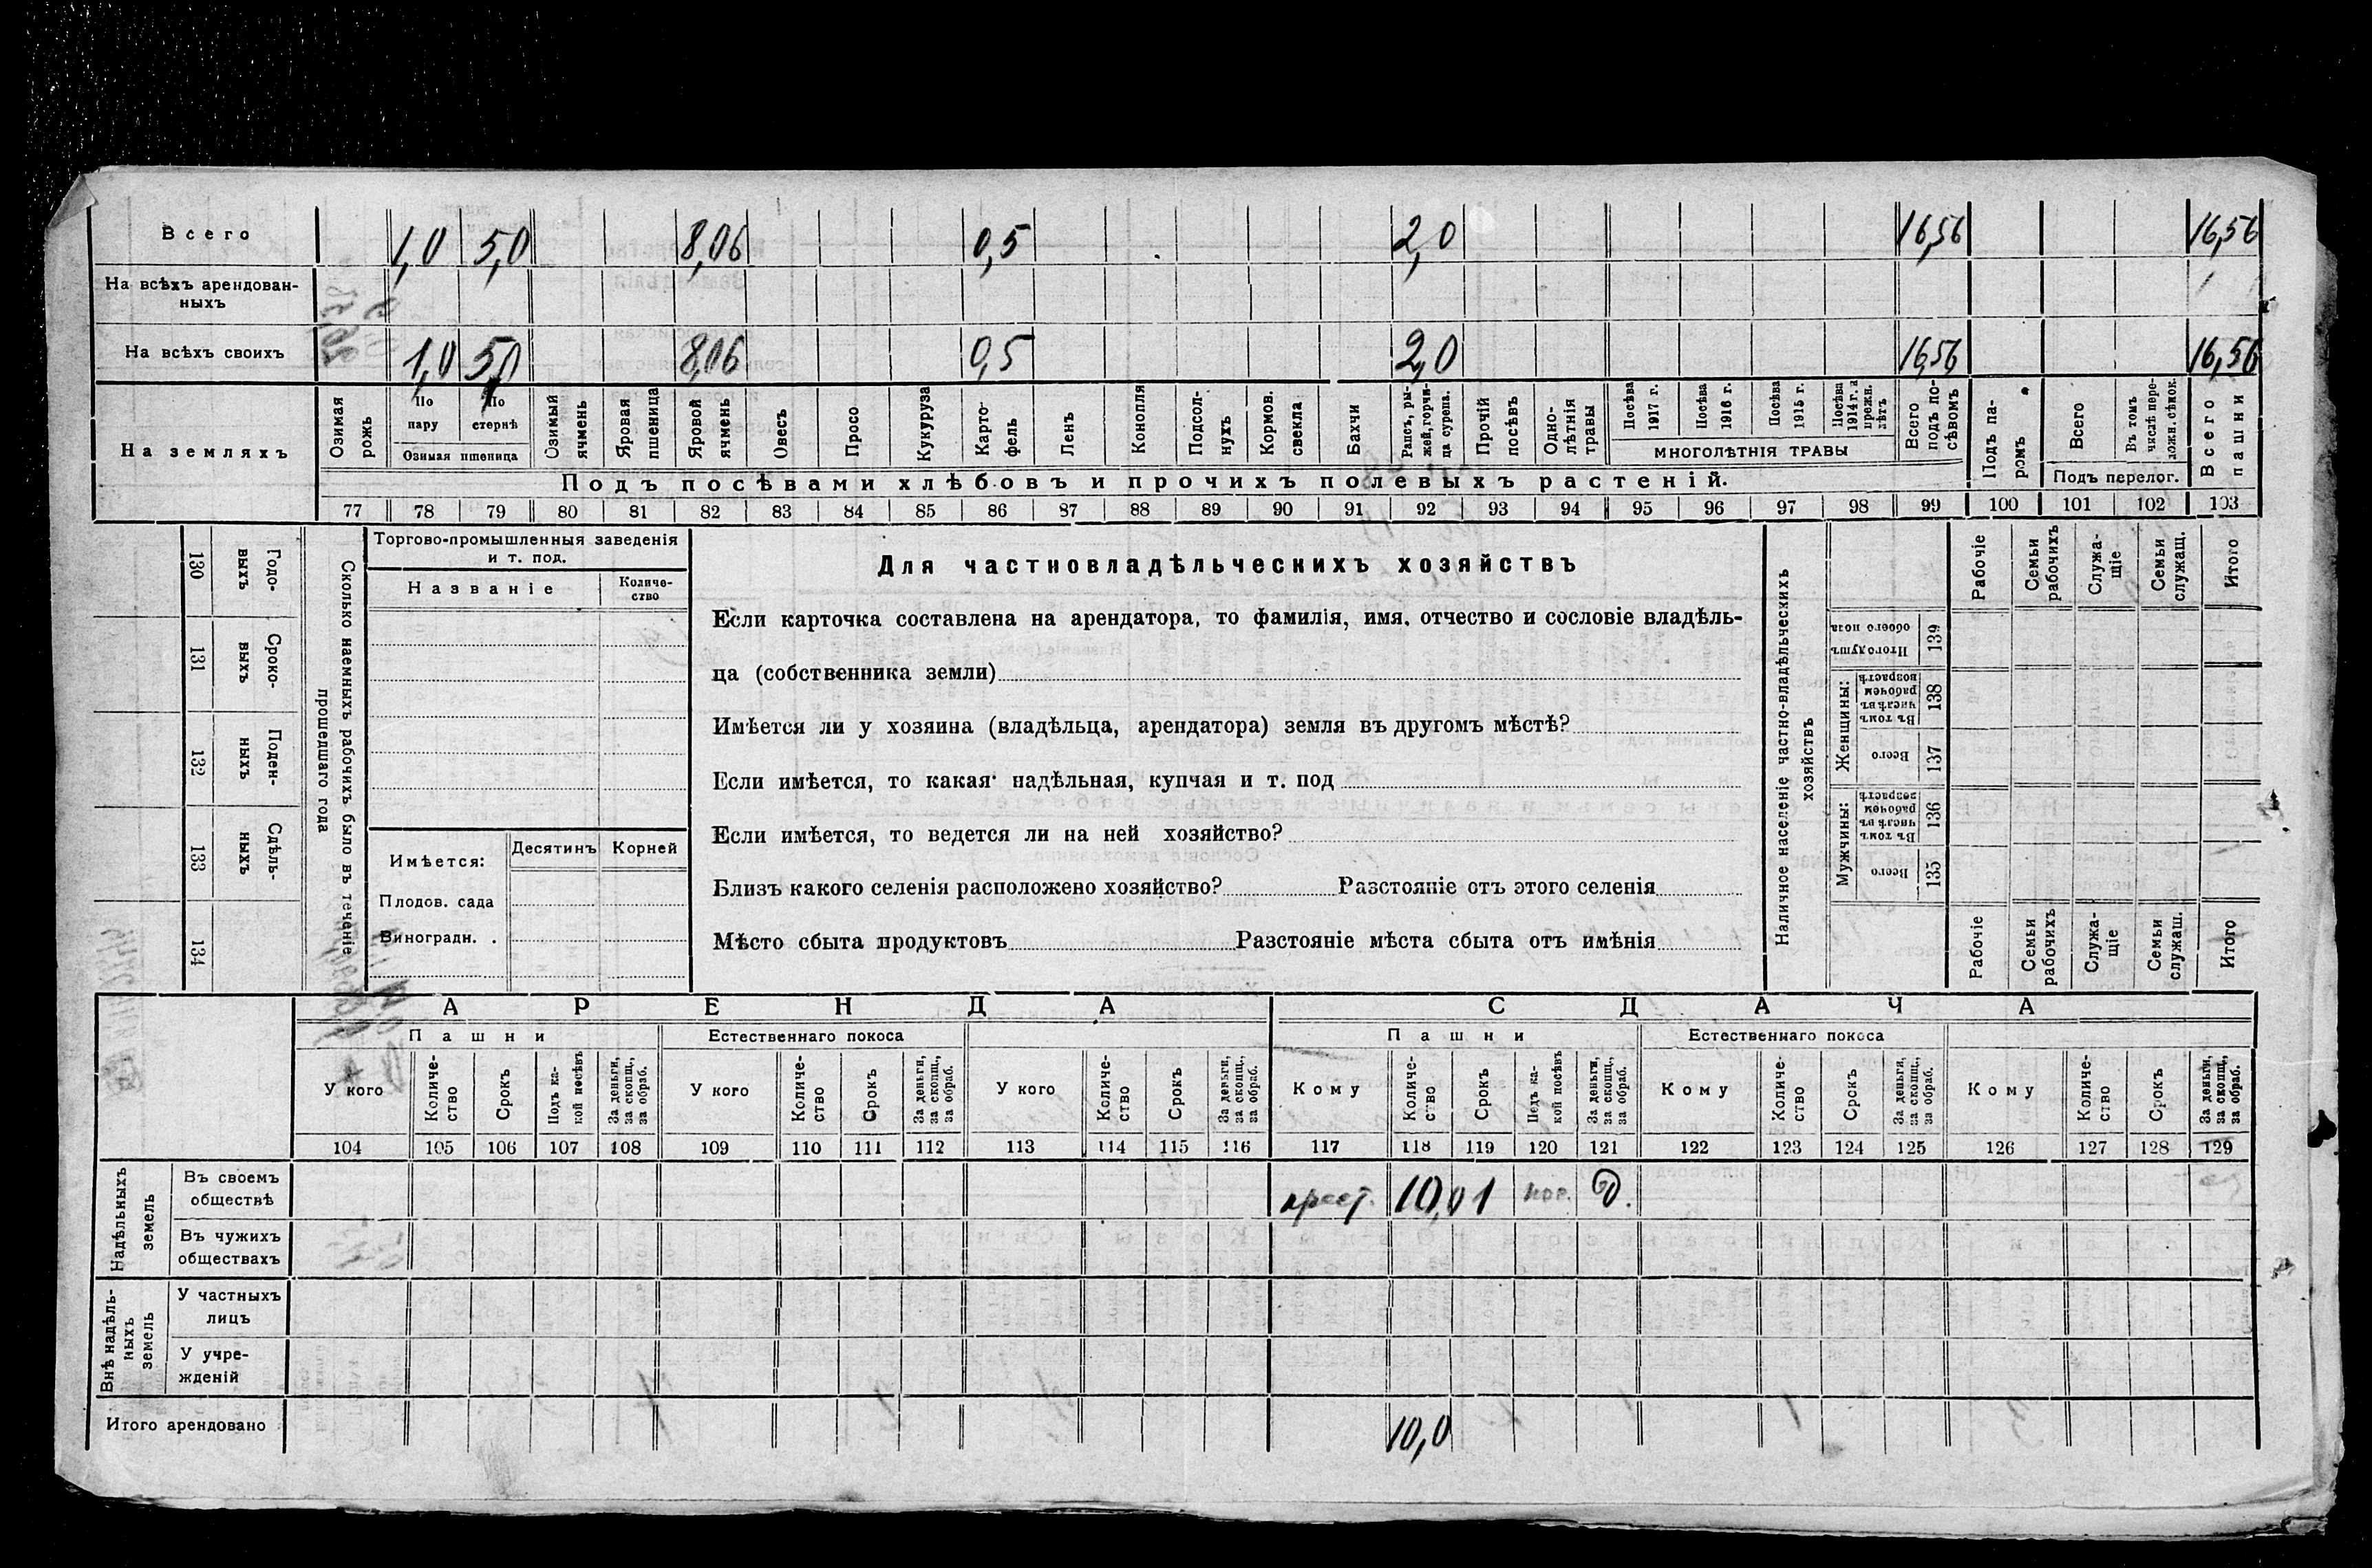 Всего 1,0 5,0 8,06 0,5 2,0 16,56 16,56
На всѣхъ арендован-
ныхъ
На всѣхъ своихъ 1,0 5,0 8,06 0,5 2,0 16,56 16,56
На земляхъ
Озимая рожь
По пару
По стернѣ
Озимая пшеница
Озимый ячмень
Яровая пшеница
Яровой ячмень
Овесъ
Просо
Кукуруза
Карто-
фель
Ленъ
Конопля
Подсол-
нухъ
Кормов. свекла
Бахчи
Рапсъ, ры-
жей, горчи-
ца сурепа.
Прочій посѣвъ
Одно-
лѣтнія травы
Посѣва 1917 г.
Посѣва 1916 г.
Посѣва 1915 г.
Посѣва 1914 г. и прежн. лѣтъ
МНОГОЛѢТНІЯ ТРАВЫ
Всего подъ по-
сѣвомъ
Подъ па-
ромъ
Всего
Въ томъ числѣ пере-
ложн. сѣнок.
Подъ перелог.
Всего пашни
Подъ посѣвами хлѣбовъ и прочихъ полевыхъ растеній.
77 78 79 80 81 82 83 84 85 86 87 88 89 90 91 92 93 94 95 96 97 98 99 100 101 102 103
Сколько наемныхъ рабочихъ было въ теченіе
прошедшаго года
Годо-
выхъ
130
Сроко-
выхъ
131
Поден-
ныхъ
132
Сдѣль-
ныхъ
133
134
Торгово-промышленныя заведенія
и т. под.
Названіе
Количе-
ство
Имѣется:
Десятинъ Корней
Плодов. сада
Виноградн. .
Для частновладѣльческихъ хозяйствъ
Если карточка составлена на арендатора, то фамилія, имя, отчество и сословіе владѣль-
ца (собственника земли)
Имѣется ли у хозяина (владѣльца, арендатора) земля въ другомъ мѣстѣ?
Если имѣется, то какая· надѣльная, купчая и т. под
Если имѣется, то ведется ли на ней хозяйство?
Близъ какого селенія расположено хозяйство? Разстояніе отъ этого селенія
Мѣсто сбыта продуктовъ Разстояніе мѣста сбыта отъ имѣнія
Наличное населеніе частно-владѣльческихъ
хозяйствъ
Рабочіе
Семьи рабочихъ
Служа-
щіе
Семьи служащ.
Итого
Итого душъ обоего пола
139
Женщины:
Въ томъ числѣ въ рабочемъ возрастѣ
138
Всего
137
Мужчины:
Въ томъ числѣ въ рабочемъ возрастѣ
136
Всего
135
Рабочіе
Семьи рабочихъ
Служа-
щіе
Семьи служащ.
Итого
АРЕНДА СДАЧА
Пашни Естественнаго покоса Пашни Естественнаго покоса
У кого
Количе-
ство
Срокъ
Подъ ка-
кой посѣвъ
За деньги, за скопщ., за обраб.
У кого
Количе-
ство
Срокъ
За деньги, за скопщ., за обраб.
У кого
Количе-
ство
Срокъ
За деньги, за скопщ., за обраб.
Кому
Количе-
ство
Срокъ
Подъ ка-
кой посѣвъ
За деньги, за скопщ., за обраб.
Кому
Количе-
ство
Срокъ
За деньги, за скопщ., за обраб.
Кому
Количе-
ство
Срокъ
За деньги, за скопщ., за обраб.
104 105 106 107 108 109 110 111 112 113 114 115 116 117 118 119 120 121 122 123 124 125 126 127 128 129
Надѣльныхъ земель
Въ своемъ
обществѣ
крест. 10,0 1 д.
Въ чужихъ
обществахъ
Внѣ надѣль-
ныхъ земель
У частныхъ
лицъ
У учре-
жденій
Итого арендовано 10,0